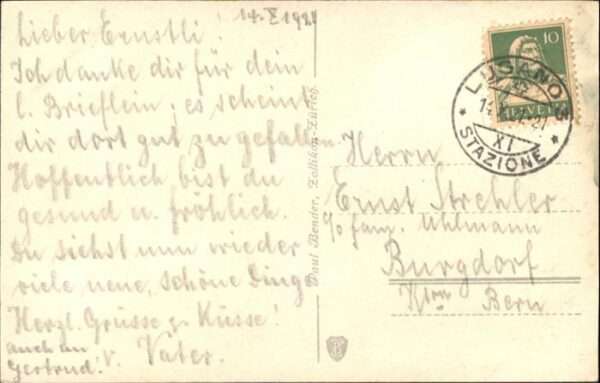 14. X 1927
Lieber Ernstli!
Ich danke dir für dein
l. Brieflein; es scheint
dir dort gut zu gefallen
Hoffentlich bist du
gesund u. fröhlich.
Du siehst nun wieder
viele neue, schöne Dinge
Herzl. Grüsse & Küsse!
v. Vater.
auch an
Gertrud!
Paul Bender, Zollikon-Zürich
10
HELVETIA
LUGANO 3
STAZIONE
XI
Herrn
Ernst Strehler
c/o fam. Uhlmann
Burgdorf
Ktn Bern